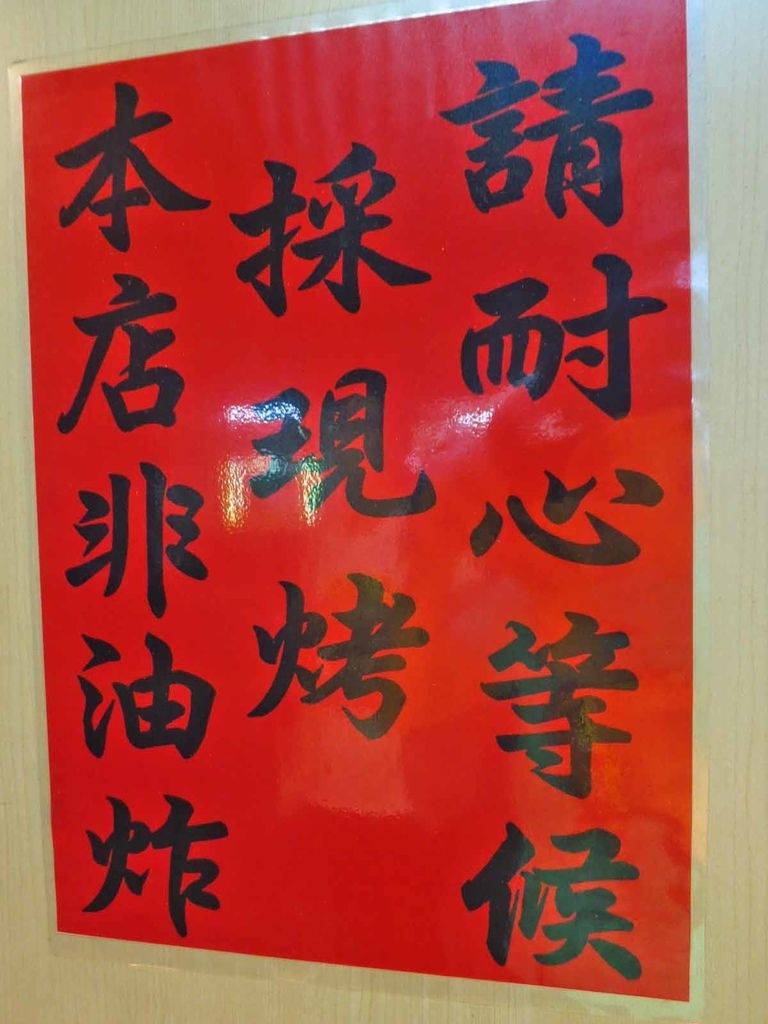 本店非油炸
採現烤
請耐心等候